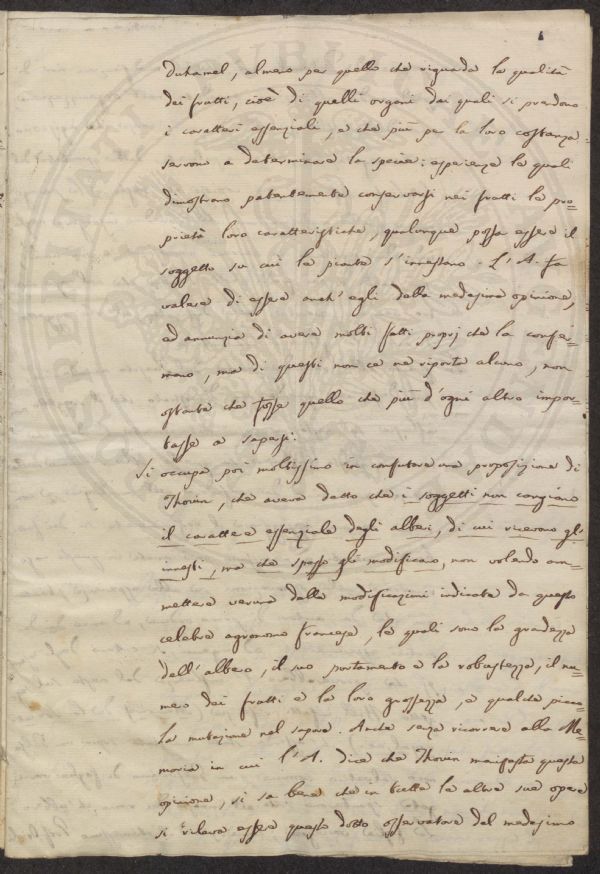 Duhamel, almeno per quello che riguarda la qualità
dei frutti, cioè di quelli organi dai quali si prendono
i caratteri essenziali, e che più per la loro costanza
servono a determinare la specie: esperienze le quali
dimostrano patentemente conservarsi nei frutti le pro=
prietà loro caratteristiche, qualunque possa essere il
soggetto su cui le piante s'innestano. L'A. fa
valere di essere anch'egli della medesima opinione,
ed annunzia di avere molti fatti proprj che la confer=
mano, ma di questi non ce ne riporta alcuno, non
ostante che fosse quello che più d'ogni altro impor=
tasse a sapersi.
Si occupa poi moltissimo in confutare una proposizione di
Thovin, che aveva detto che i soggetti non cangiano
il carattere essenziale degli alberi, di cui ricevono gl'
innesti, ma che spesso gli modificano, non volendo am=
mettere veruna delle modificazioni indicate da questo
celebre agronomo francese, le quali sono la grandezza
dell'albero, il suo portamento e la robustezza, il nu=
mero dei frutti e la loro grossezza, e qualche picco=
la mutazione nel sapore. Anche senza ricorrere alla Me=
moria in cui l'A. dice che Thovin maifesta questa
opinione, si sa bene che in tutte le altre sue opere
si rileva essere questo dotto osservatore del medesimo